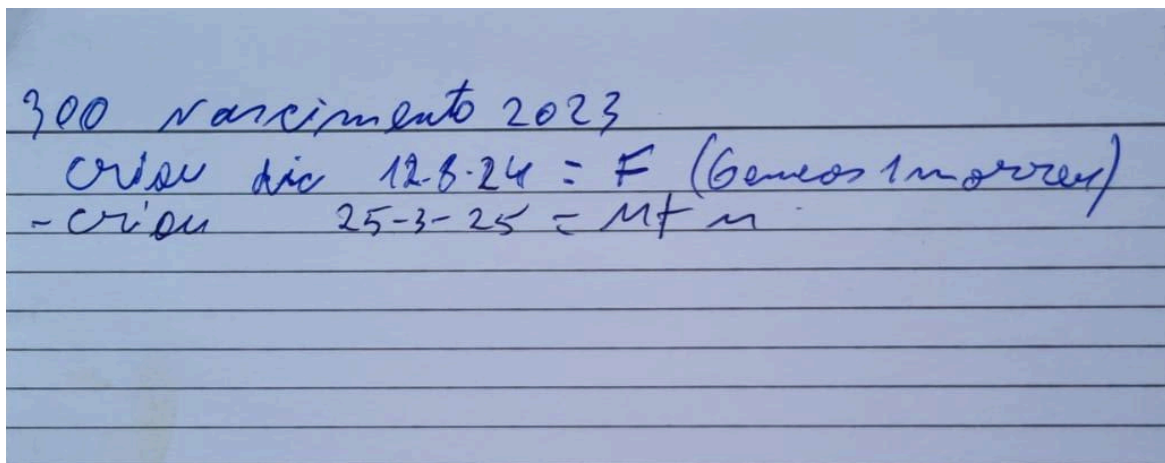 300 Nascimento 2023
criou dia 12-8-24 = F (Gemeos 1 morreu)
- criou 25-3-25 = M